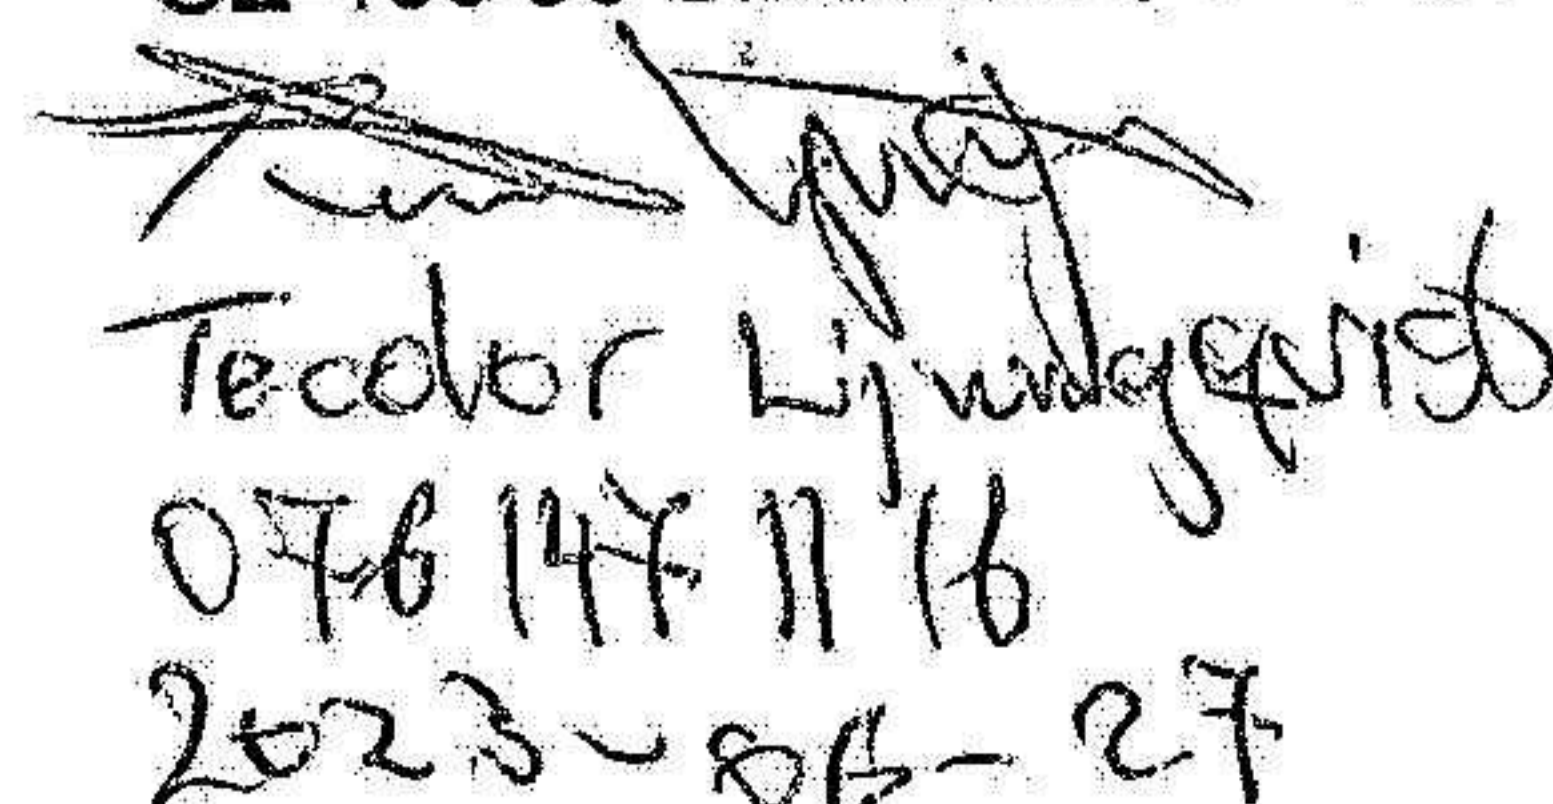 Teodor Ljungqvist
076 147 11 16
2023-06-27